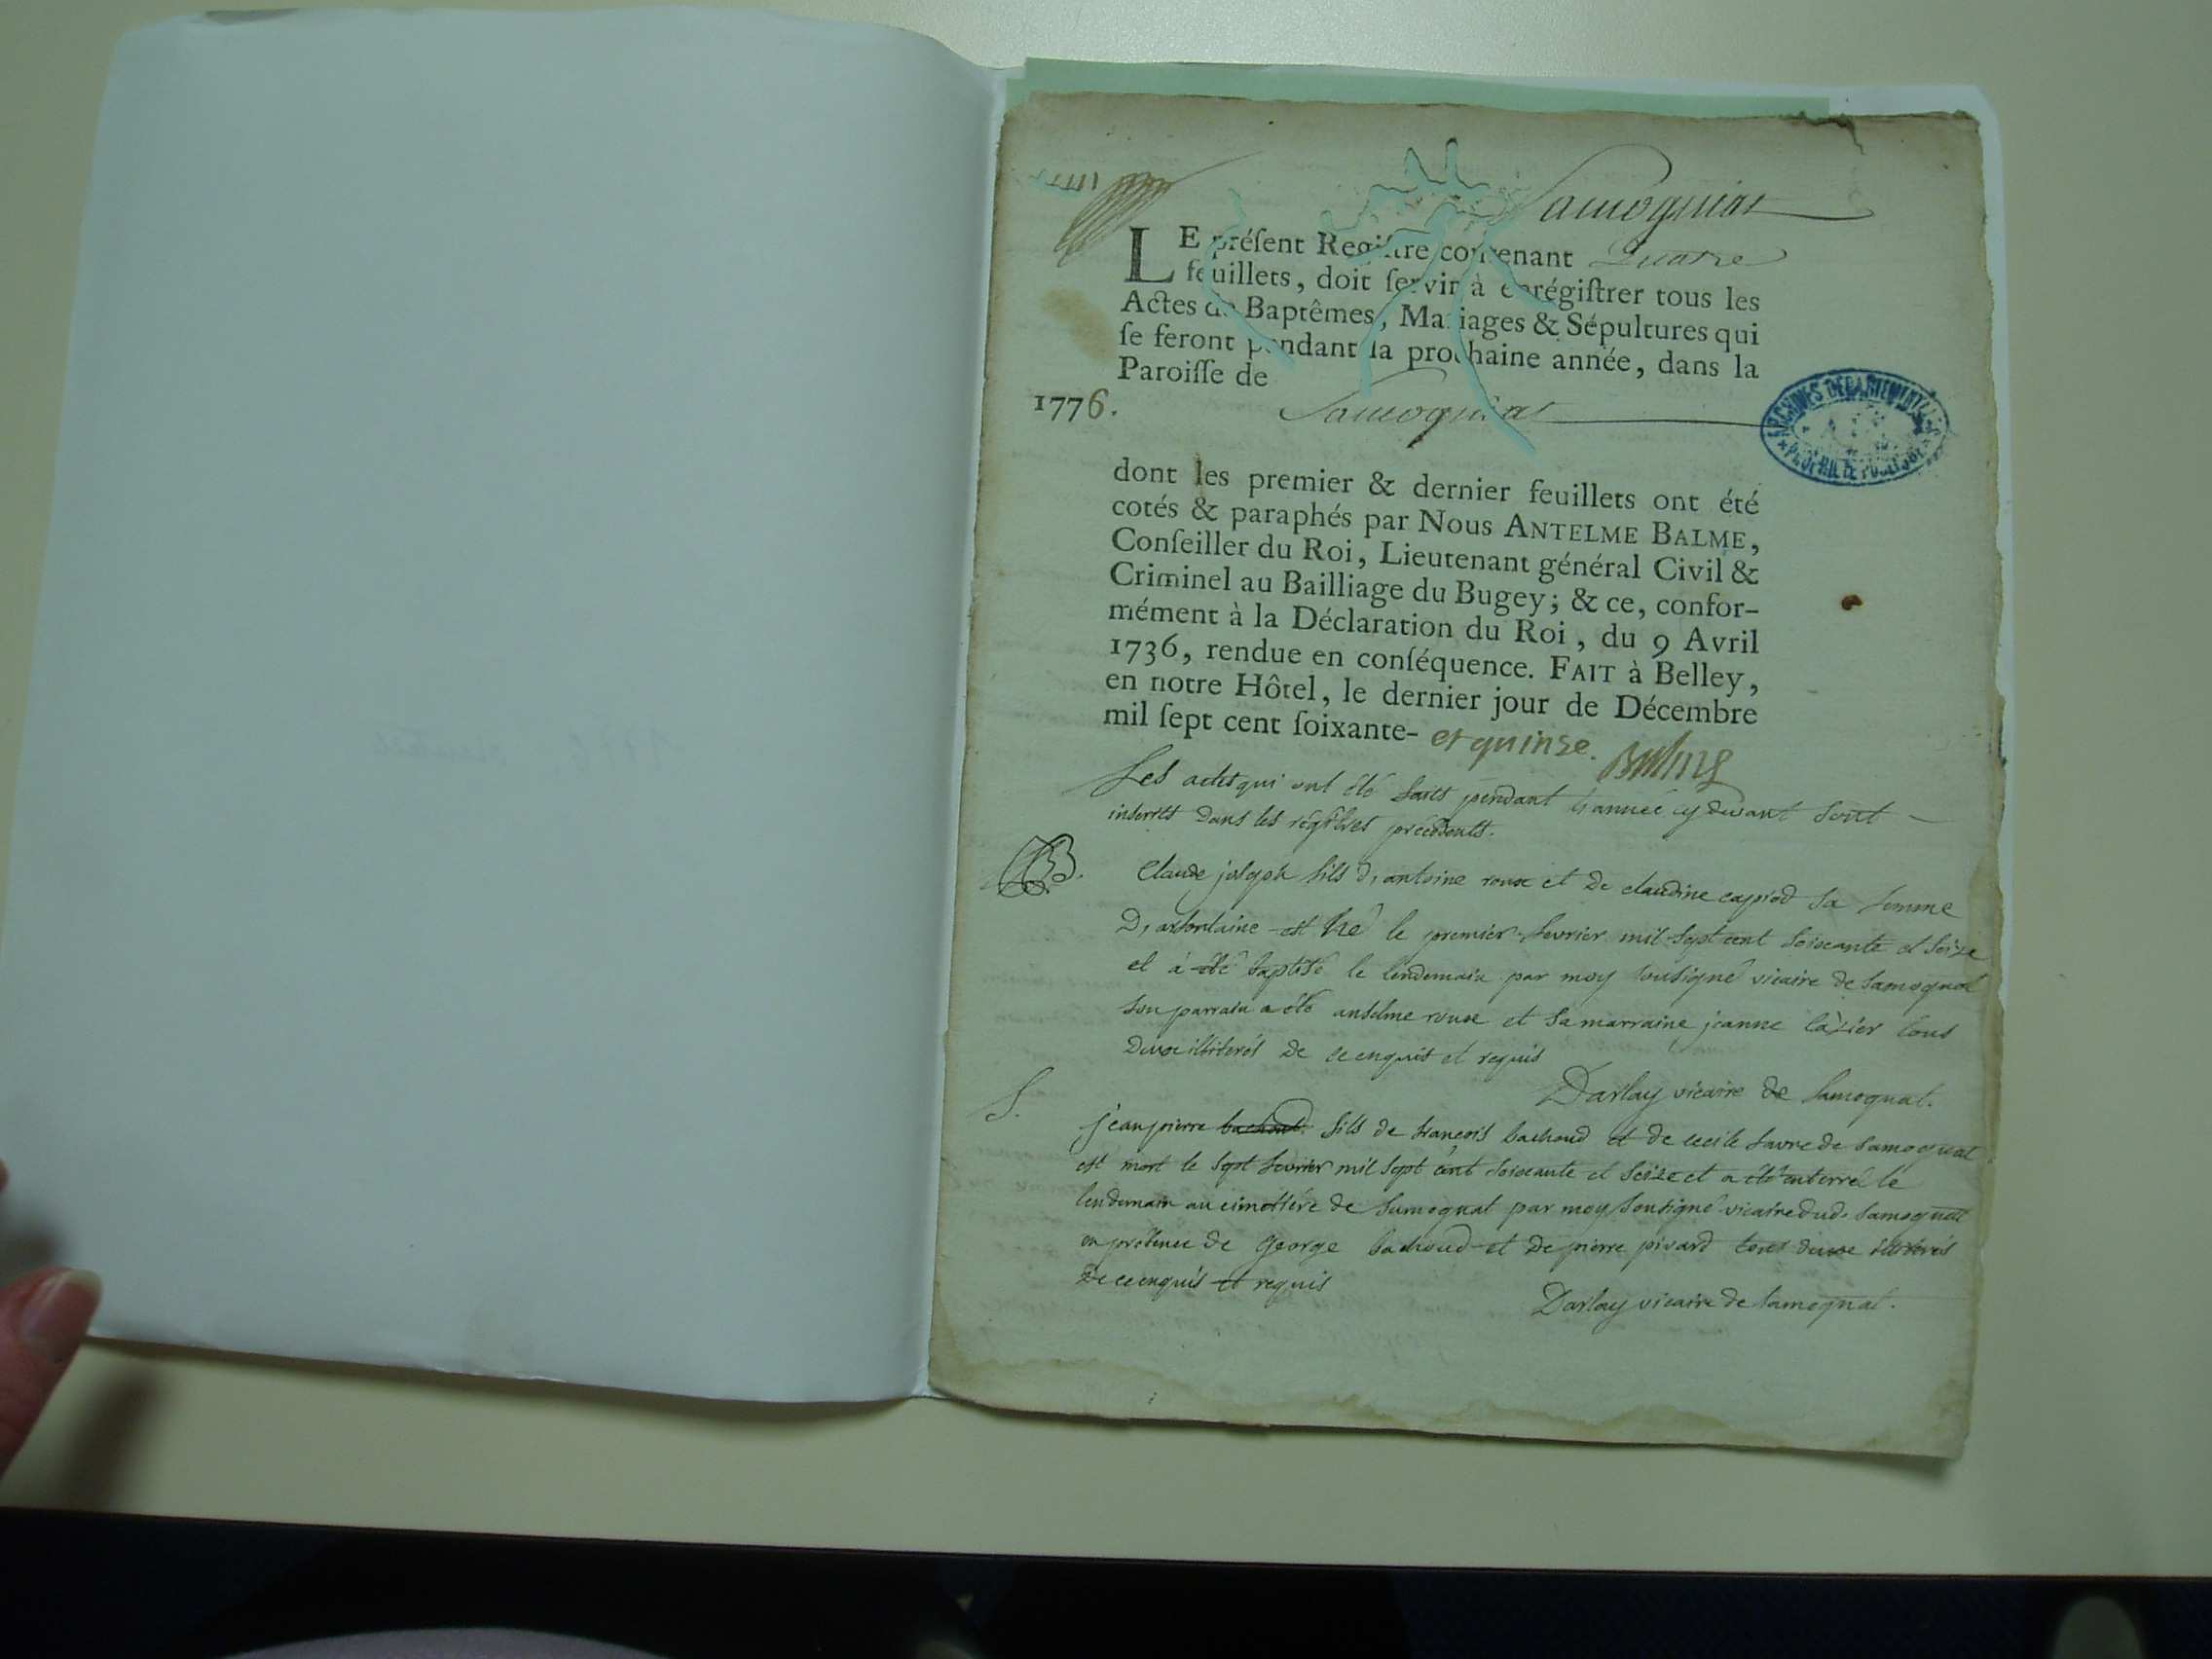 Samogniat
LE préſent Regiſtre contenant Quatre
feuillets, doit ſervir à enrégiſtrer tous les
Actes de Baptêmes, Mariages & Sépultures qui
ſe feront pendant la prochaine année, dans la
Paroiſſe de
1776. Samogniat
ARCHIVES DÉPARTEMENTALES
PROPRIÉTÉ PUBLIQUE
dont les premier & dernier feuillets ont été
cotés & paraphés par Nous ANTELME BALME,
Conſeiller du Roi, Lieutenant général Civil &
Criminel au Bailliage du Bugey; & ce, confor-
mément à la Déclaration du Roi, du 9 Avril
1736, rendue en conſéquence. FAIT à Belley,
en notre Hôtel, le dernier jour de Décembre
mil ſept cent ſoixante- et quinze. Balme
Les actes qui ont été faits pendant l'année cy devant sont
inserrés dans les régistres précédents.
B. Claude joseph fils d'antoine roux et de claudine caprod sa femme
D'arfontaine est né le premier fevrier mil sept cent soixante et seize
et à été baptisé le lendemain par moy sousigné vicaire de samognat
son parrain a été anselme roux et sa marraine jeanne tous
deux illiterés de ce enquis et requis
Darlay vicaire de samognat.
S. jean pierre bachoud fils de françois bachoud et de cecile favre de samognat
est mort le sept fevrier mil sept cent soixante et seize et a été enterré le
lendemain au cimettére de samognat par moy sousigné vicaire dud. samognat
en présence de george bachoud et de pierre pivard tous deux illiterés
de ce enquis et requis
Darlay vicaire de samognat.